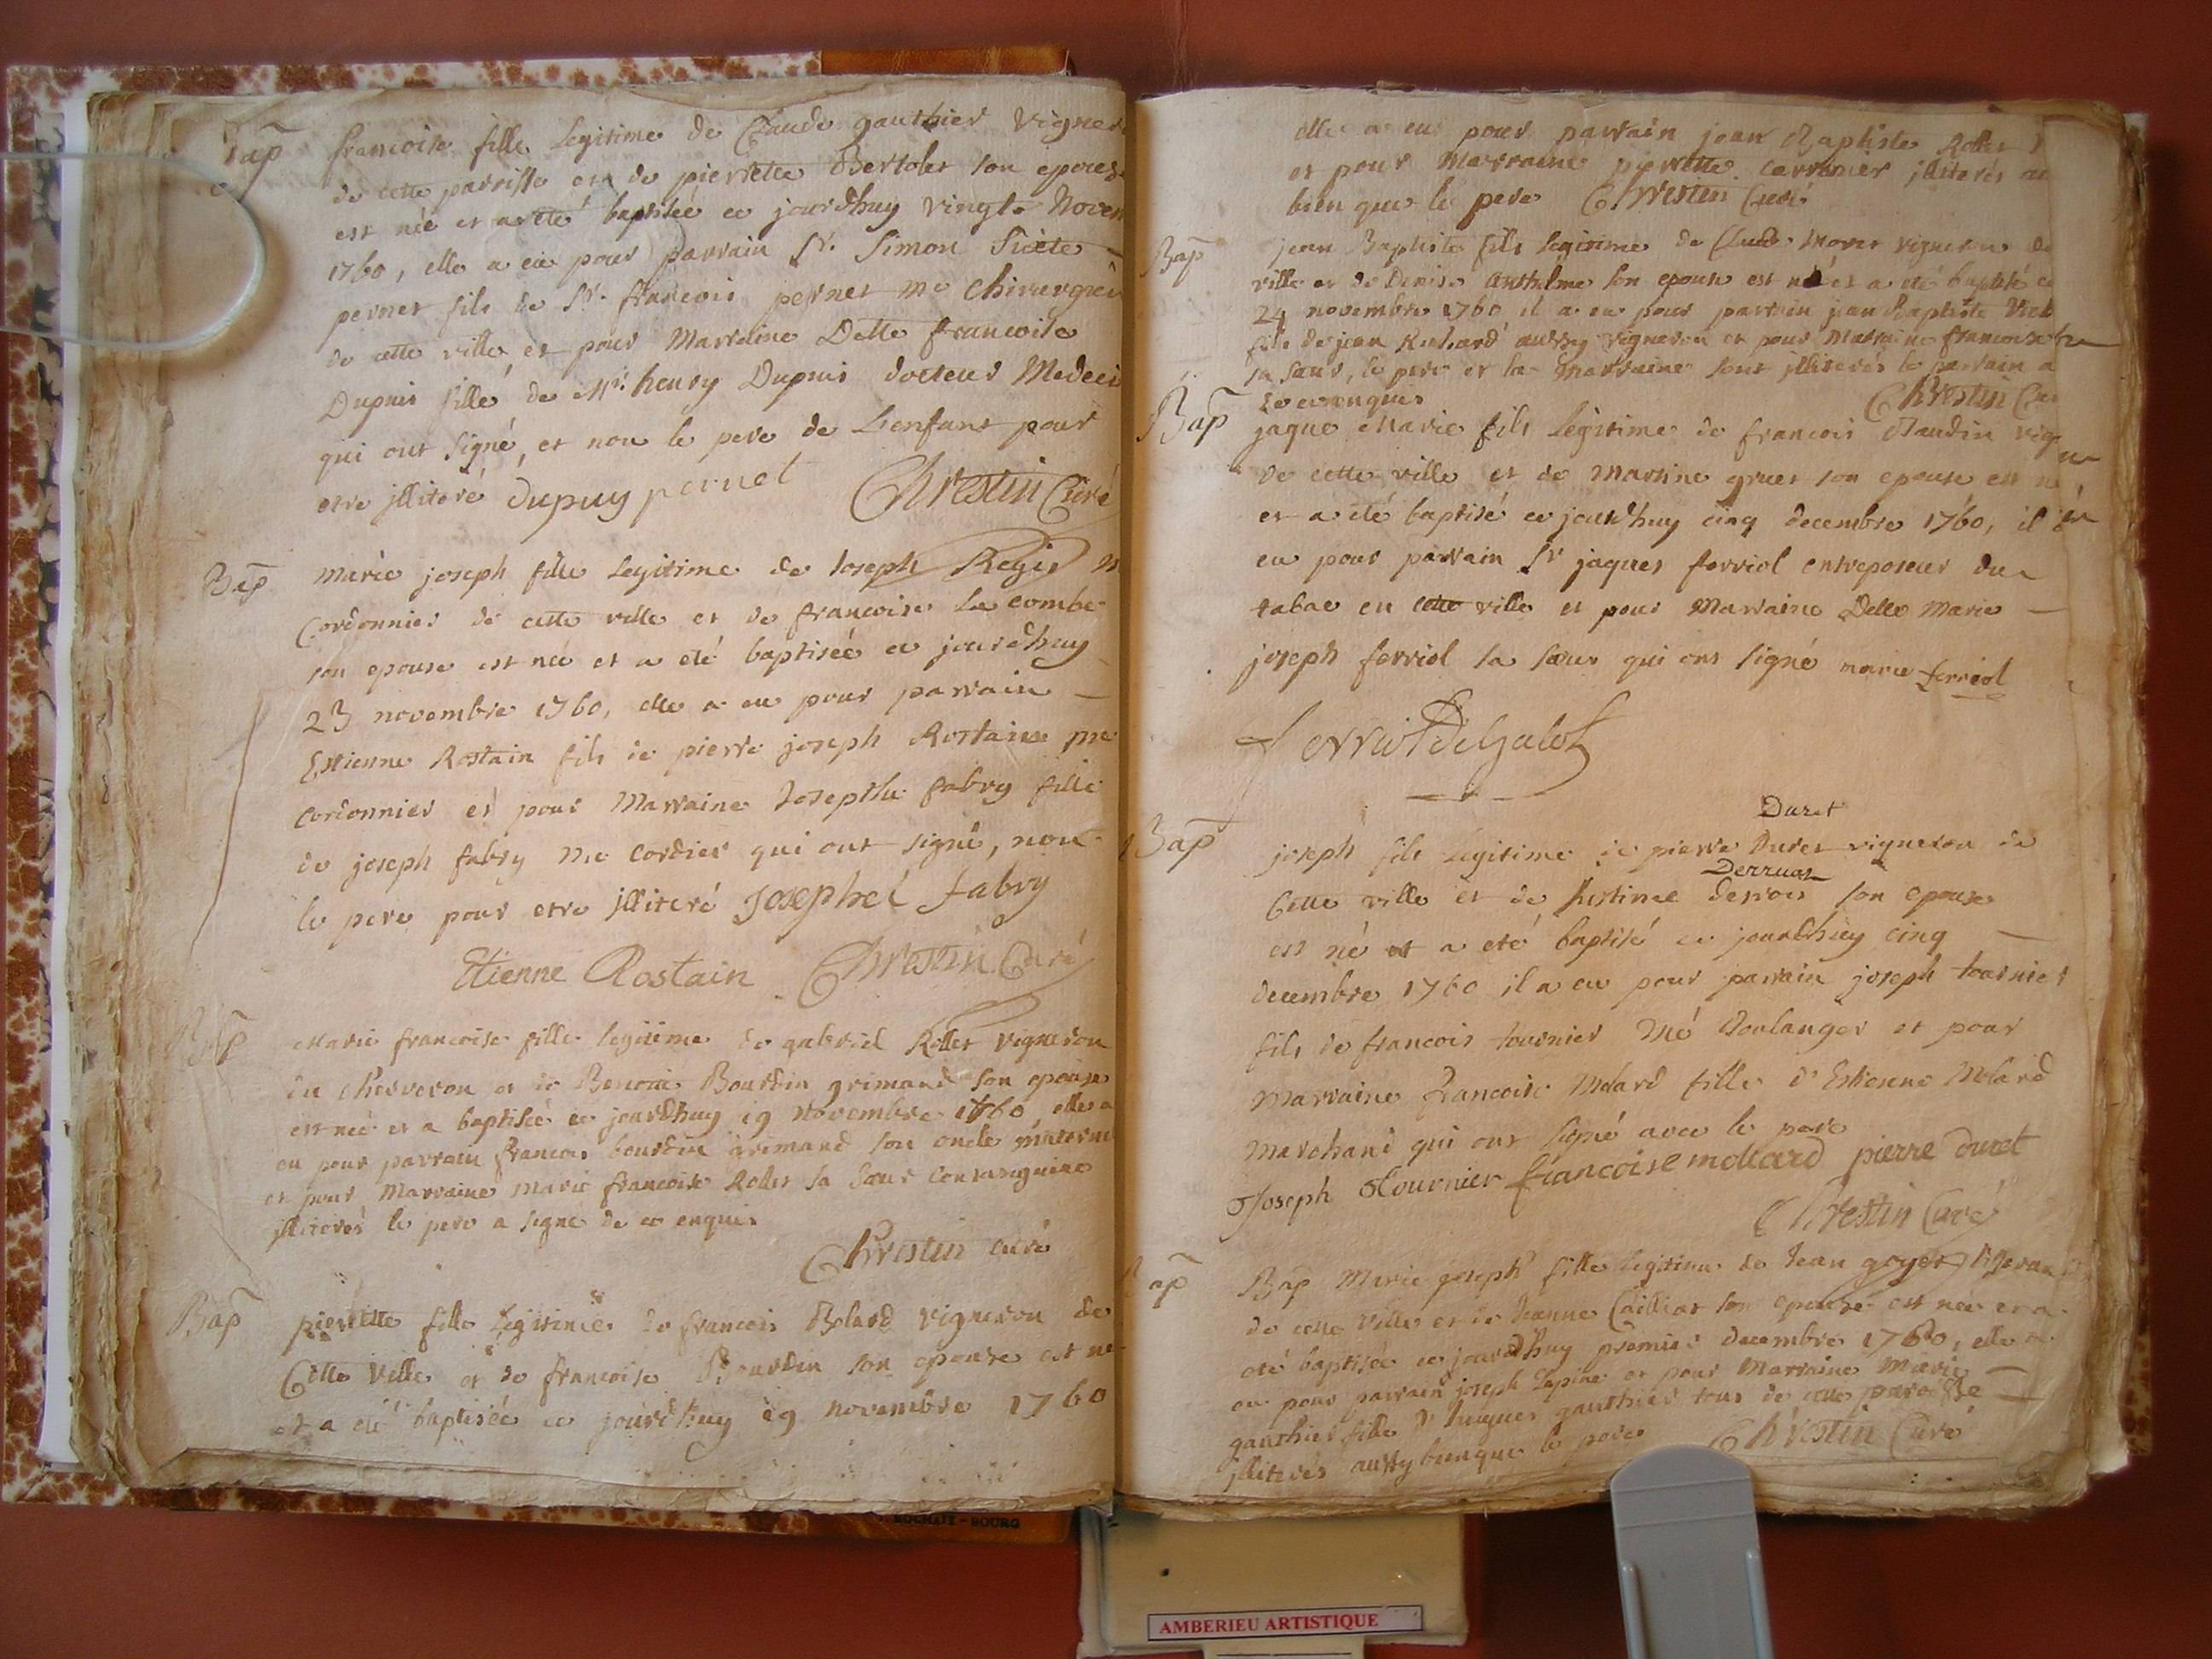 Bap francoise fille Legitime de Claude gauthier vigner
de cette parrisse et de pierrette Bertolet son epouse
est née et a eté baptisée ce jourdhuy vingte Novem
1760, elle a eu pour parrain Sr. Simon
pernet fils de Sr. francois pernet me chirurgien
de cette ville et pour Marraine Delle francoise
Dupuis fille de Mr. henry Dupuis docteur Medecin
qui ont signé, et non le pere de Lenfant pour
etre jlliteré dupuy pernet Chrestin Curé
Bap Marie joseph fille Legitime de Joseph Regis m
Cordonnier de cette ville et de francoise La combe
son epouse est née et a eté baptisée ce jourdhuy
23 novembre 1760, elle a eu pour parrain
Estienne Rostain fils de pierre joseph Rostain me
cordonnier et pour Marraine Josephte fabry fille
de joseph fabry me cordier qui ont signé, non
le pere pour etre jlliteré Josephel fabry
Etienne Rostain Chrestin Curé
Bap Marie francoise fille legitime de gabriel Rollet vigneron
du et de Benoite Bourdin grimand son epouse
est née et a baptisée ce jourdhuy 19 novembre 1760, elle a
eu pour parrain francois bourdin grimand son oncle maternel
et pour Marraine marie francoise Rollet sa sœur consanguine
jlliterés le pere a signe de ce enquis
Chrestin curé
Bap pierrette fille Legitime de francois vigneron de
Cette ville et de francoise Bourdin son epouse est ne
et a eté baptisée ce jourdhuy 19 novembre 1760
elle a eu pour parrain jean Baptiste Rollet
et pour Marraine pierrette carronier jlliterés au
bien que le pere Chrestin Curé
Bap jean Baptiste fils legitime de Claude vigneron de
ville et de Denise Anthelme son epouse est né et a eté baptisé ce
24 novembre 1760 il a eu pour parrain jean Baptiste
fils de jean aussy vigneron et pour Marraine francoise
sa sœur, le pere et la Marraine sont jlliterés le parrain a
de ce enquis Chrestin Cur
Bap jaque Marie fils Legitime de francois Baudin vigne
de cette ville et de Martine gruet son epouse est né
et a eté baptisé ce jourdhuy cinq decembre 1760, il a
eu pour parrain Sr jaques ferriol entreposeur du
tabac en cette ville et pour Marraine Delle Marie
joseph ferriol sa sœur qui ont signé marie ferriol
Bap joseph fils Legitime de pierre Duret Duret vigneron de
Cette ville et de Justine derrois Derruas son epouse
est né et a eté baptisé ce jourdhuy cinq
decembre 1760 il a eu pour parrain joseph tournier
fils de francois tournier Mé Boulanger et pour
Marraine francoise Molard fille d'Estienne Molard
Marchand qui ont signé avec le pere
Joseph Tournier francoise mollard pierre duret
Chrestin Curé
Bap Bap Marie joseph fille legitime de Jean goyet tisseran
de cette ville et de Jeanne Cailliat son epouse est née et a
eté baptisée ce jourdhuy premier decembre 1760, elle a
eu pour parrain joseph Lapine et pour Marraine Marie
gauthier fille d'hugues gauthier tous de cette paroisse
jlliterés aussy bienque le pere Chrestin Curé
AMBERIEU ARTISTIQUE